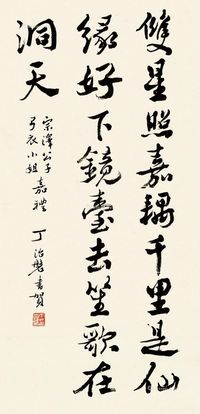 雙星照嘉耦千里是仙
緣好下鏡臺去笙歌在
洞天
宗澤公子
弓衣小姐嘉禮
丁治磐書賀